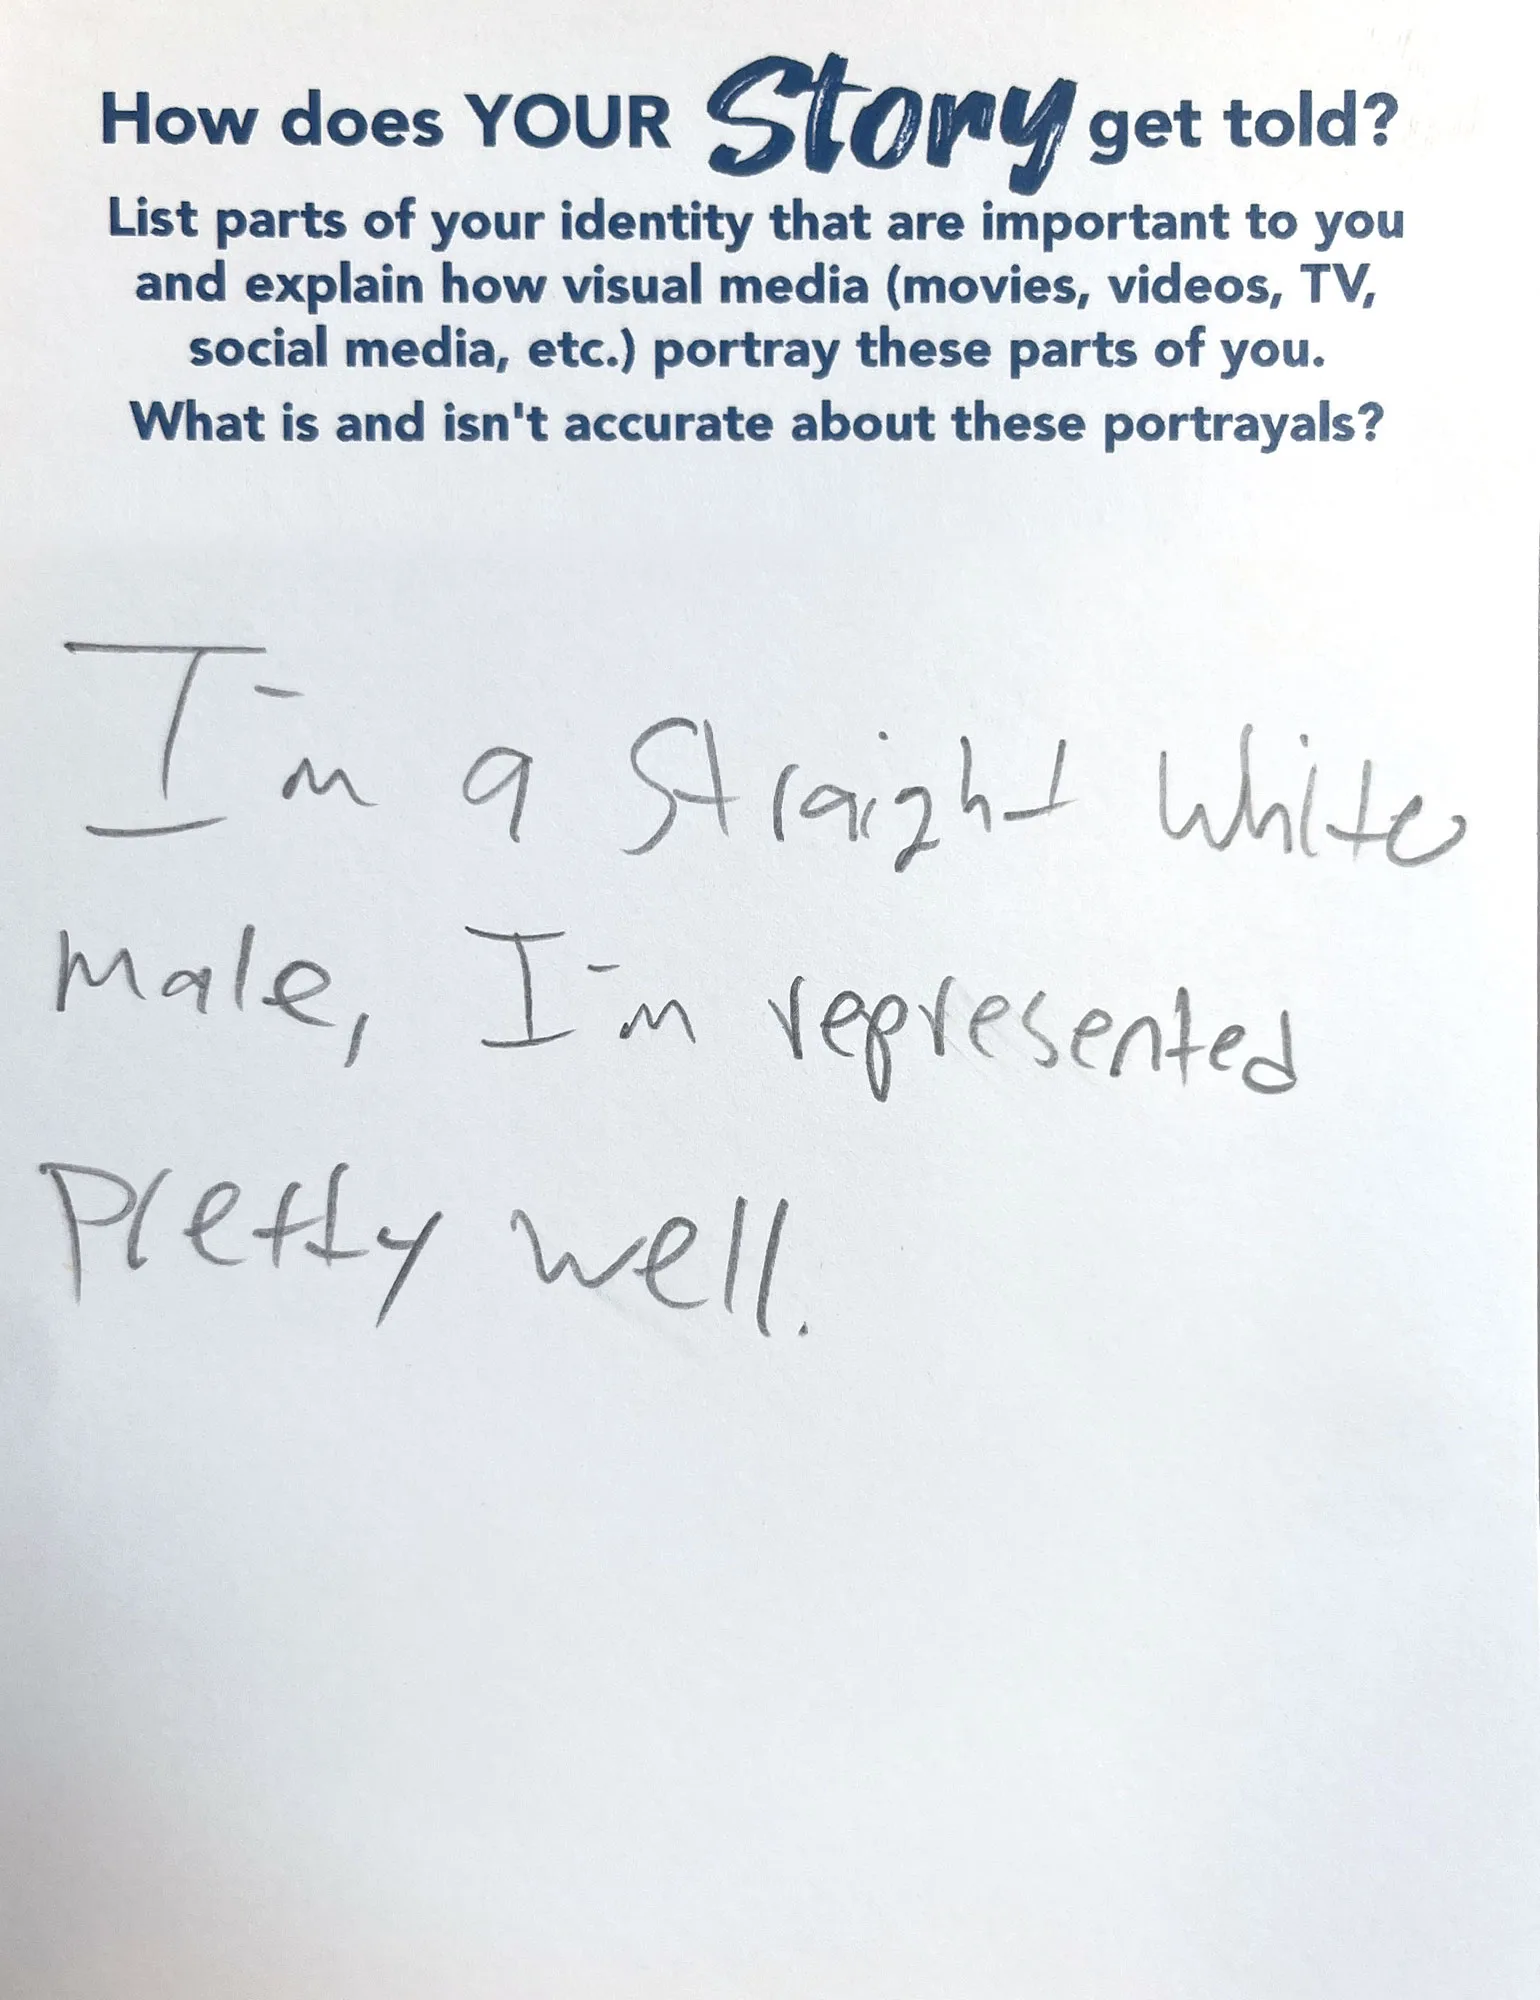 How does YOUR Story get told?
List parts of your identity that are important to you
and explain how visual media (movies, videos, TV,
social media, etc.) portray these parts of you.
What is and isn't accurate about these portrayals?
I'm a Straight White
male, I'm represented
Pretty well.